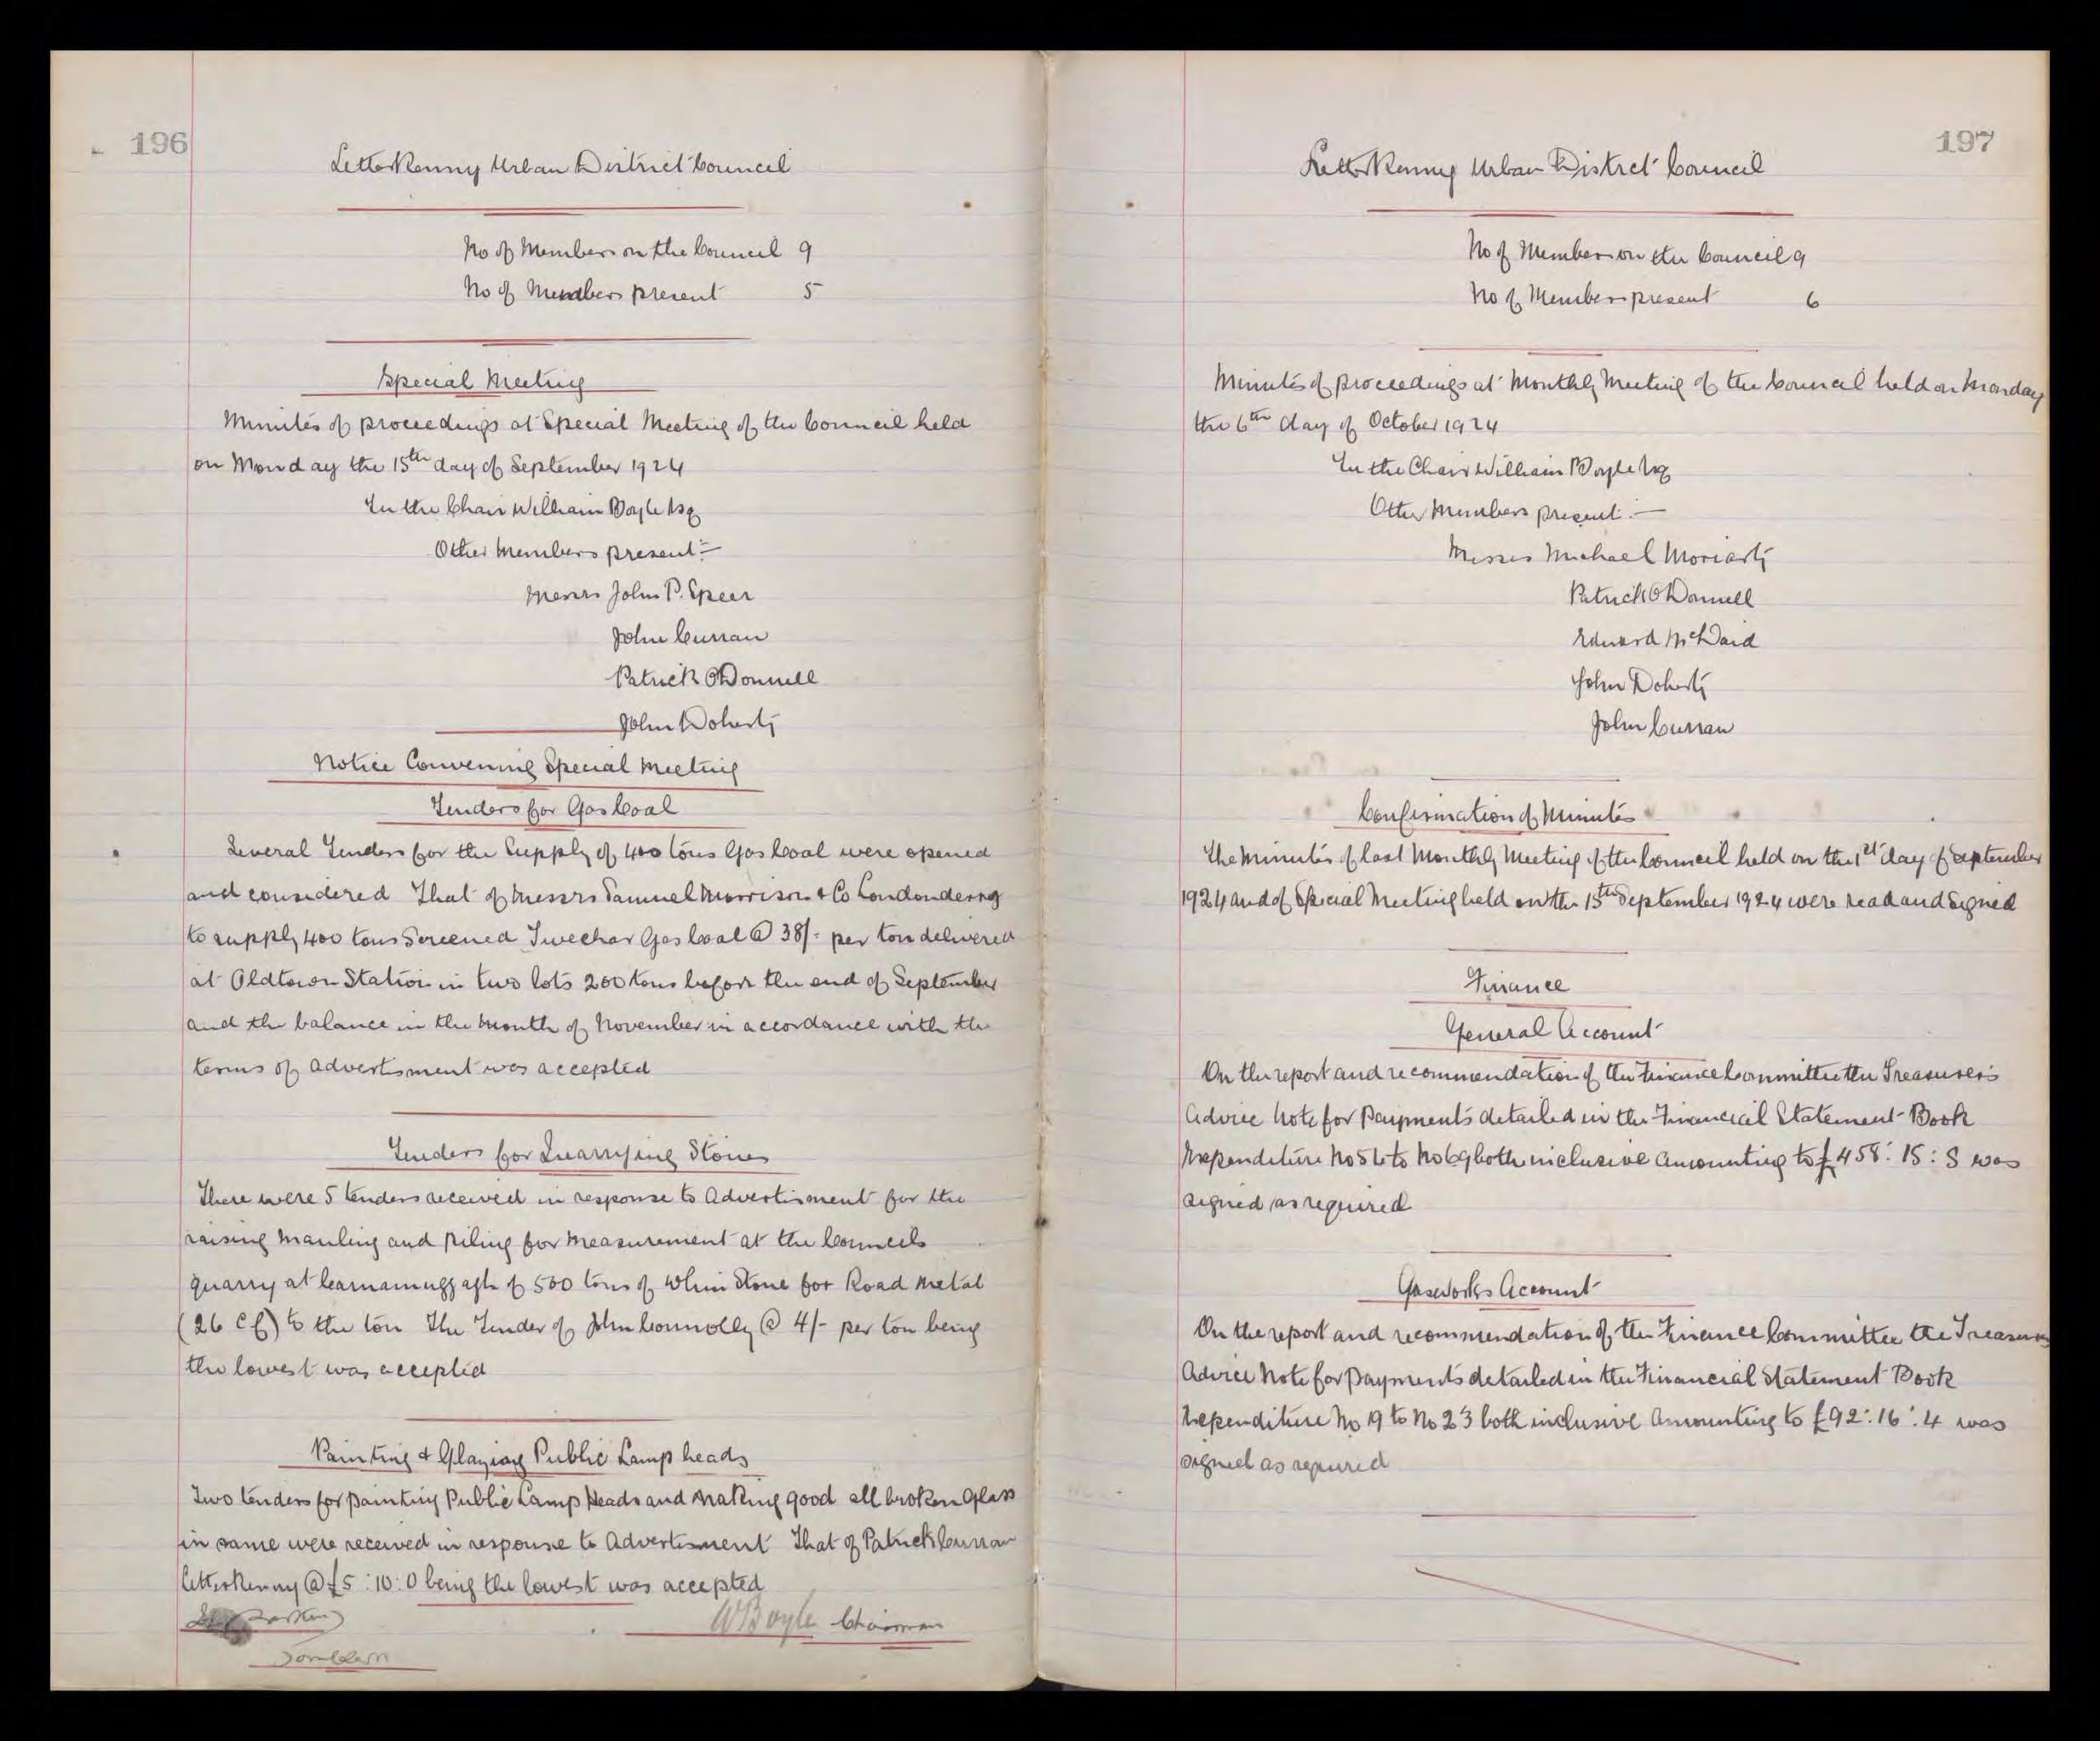 196
Letterkenny Urban District Council
No of Members on the Council 9
No of Members present 5
Special Meeting
Minutes of proceedings at Special Meeting of the Council held
on Monday the 15th day of September 1924
In the Chair William Boyle Esq
Other Members present:-
Messrs John P. Speer
John Curran
Patrick O'Donnell
John Doherty
Notice Convening Special Meeting
Tenders for Gas Coal
Several Tenders for the Supply of 400 tons Gas Coal were opened
and considered That of Messrs Samuel Morrison & Co Londonderry
to supply 400 tons Screened Twechar Gas Coal @ 38/- per ton delivered
at Oldtown Station in two lots 200 tons before the end of September
and the balance in the month of November in accordance with the
terms of advertisment was accepted
Tenders for Quarrying Stones
There were 5 tenders received in response to Advertisment for the
raising Manling and Piling for Measurement at the Councils
quarry at of 500 tons of Whin Stone for Road Metal
(26 Cf) to the ton The Tender of John Connolly @ 4/- per ton being
the lowest was accepted
Painting & Glazing Public Lamp heads
Two tenders for painting Public Lamp Heads and Making good all broken Glass
in same were received in response to Advertisment That of Patrick Curran
Letterkenny @ £5:10:0 being the lowest was accepted
W Boyle Chairman
Town Clerk
197
Letterkenny Urban District Council
No of Members on the Council 9
No of Members present 6
Minutes of proceedings at Monthly Meeting of the Council held on Monday
the 6th day of October 1924
In the Chair William Boyle Esq
Other Members present:-
Messrs Michael Moriarty
Patrick O'Donnell
Edward McDaid
John Doherty
John Curran
Confirmation of Minutes
The Minutes of last Monthly Meeting of the Council held on the 1st day of September
1924 and of Special Meeting held on the 15th September 1924 were read and Signed
Finance
General Account
On the report and recommendation of the Finance Committee the Treasurer's
Advice Note for Payments detailed in the Financial Statement Book
Expenditure No 56 to No 69 both inclusive amounting to £458:15:8 was
signed as required
Gasworks Account
On the report and recommendation of the Finance Committee the Treasurers
Advice Note for payments detailed in the Financial Statement Book
Expenditure No 19 to No 23 both inclusive Amounting to £92:16:4 was
signed as required